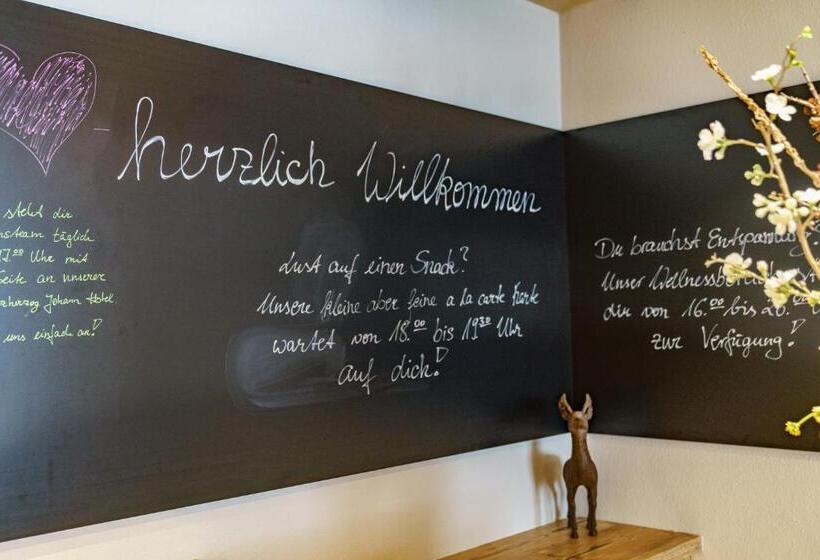 herzlich Willkommen
steht dir
team täglich
17.00 Uhr mit
Seite an unserer
Erzherzog Johann Hotel
uns einfach an!
Lust auf einen Snack?
Unsere kleine aber feine a la carte Karte
wartet von 18.00 bis 19.30 Uhr
auf dich!
Du brauchst Entspannung?
Unser Wellnessbereich
dir von 16.00 bis 20.
zur Verfügung!